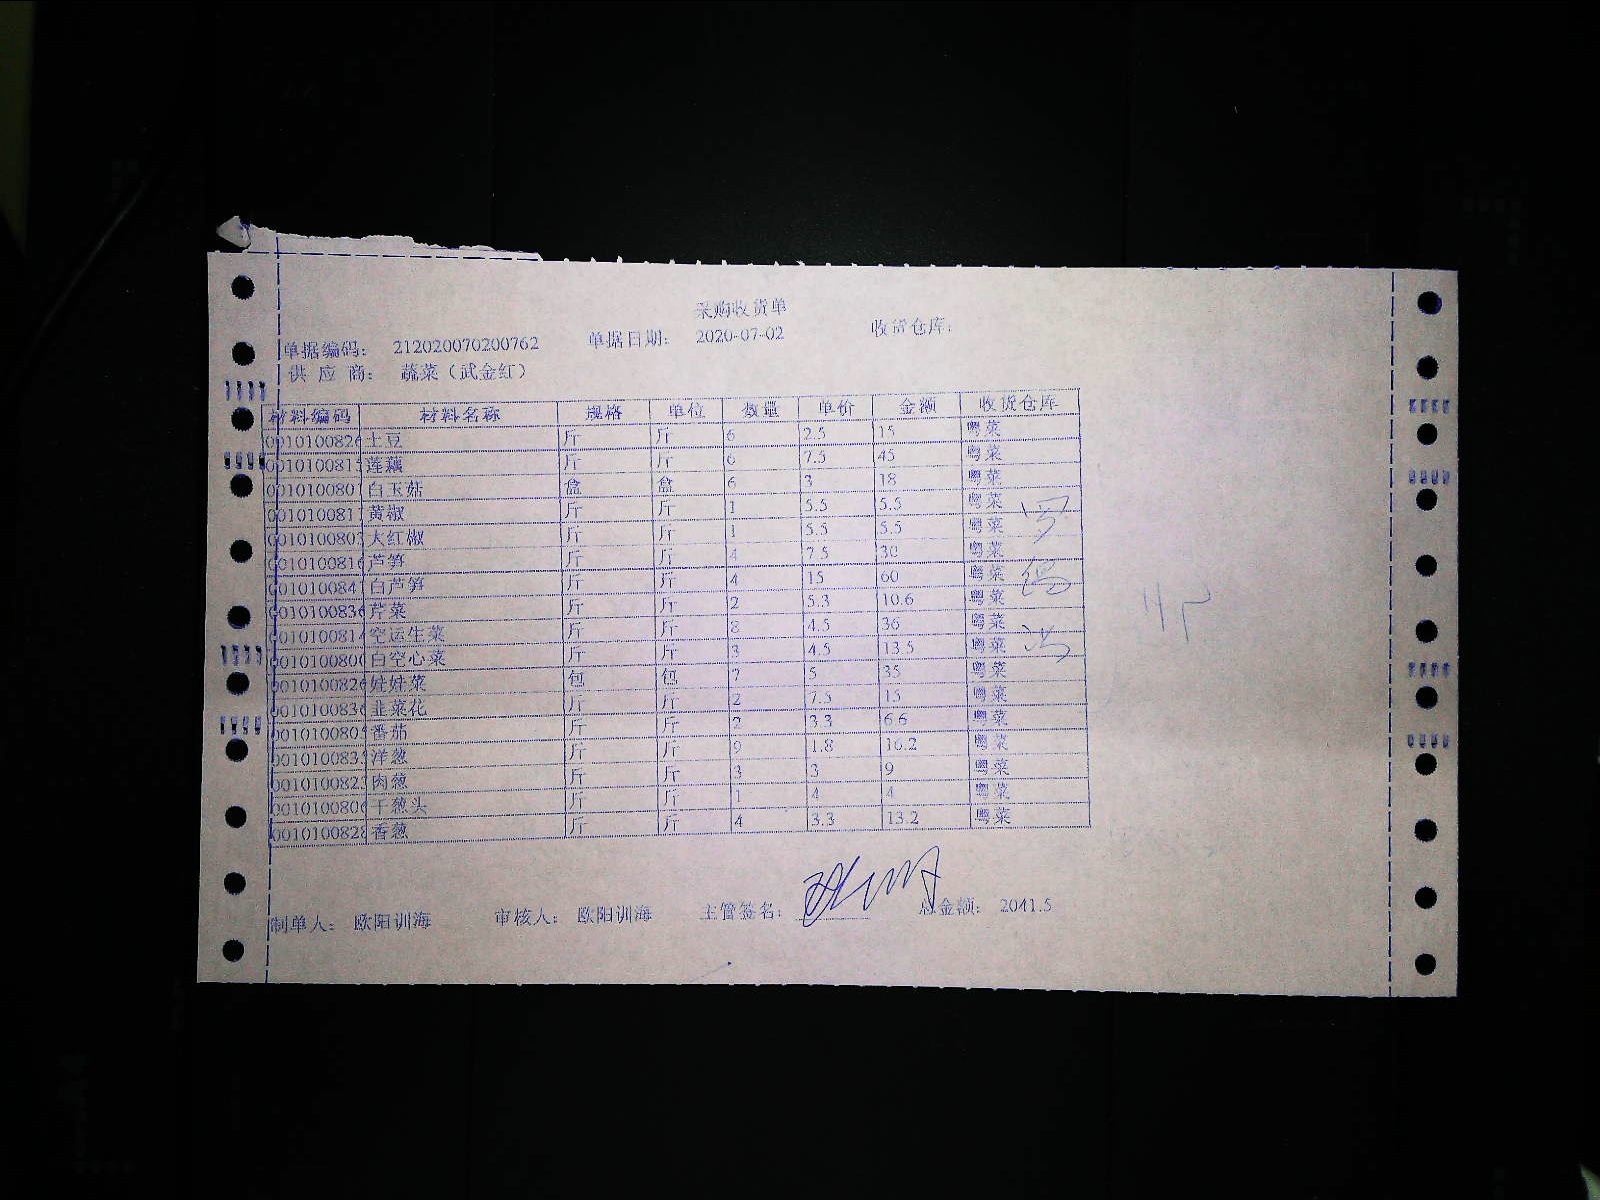 采购收货单
单据编码： 212020070200762 单据日期： 2020-07-02 收货仓库：
供 应 商： 蔬菜（武金红）
材料编码 材料名称 规格 单位 数量 单价 金额 收货仓库
0010100826 土豆 斤 斤 6 2.5 15 粤菜
001010081 莲藕 斤 斤 6 7.5 45 粤菜
001010080 白玉菇 盒 盒 6 3 18 粤菜
001010081 黄椒 斤 斤 1 5.5 5.5 粤菜
001010080 大红椒 斤 斤 1 5.5 5.5 粤菜
001010081 芦笋 斤 斤 4 7.5 30 粤菜
001010084 白芦笋 斤 斤 4 15 60 粤菜
001010083 芹菜 斤 斤 2 5.3 10.6 粤菜
001010081 空运生菜 斤 斤 8 4.5 36 粤菜
001010080 白空心菜 斤 斤 3 4.5 13.5 粤菜
001010082 娃娃菜 包 包 7 5 35 粤菜
001010083 韭菜花 斤 斤 2 7.5 15 粤菜
001010080 番茄 斤 斤 2 3.3 6.6 粤菜
001010083 洋葱 斤 斤 9 1.8 16.2 粤菜
001010082 肉葱 斤 斤 3 3 9 粤菜
001010080 干葱头 斤 斤 1 4 4 粤菜
001010082 香葱 斤 斤 4 3.3 13.2 粤菜
制单人： 欧阳训海 审核人： 欧阳训海 主管签名： 总金额： 2041.5